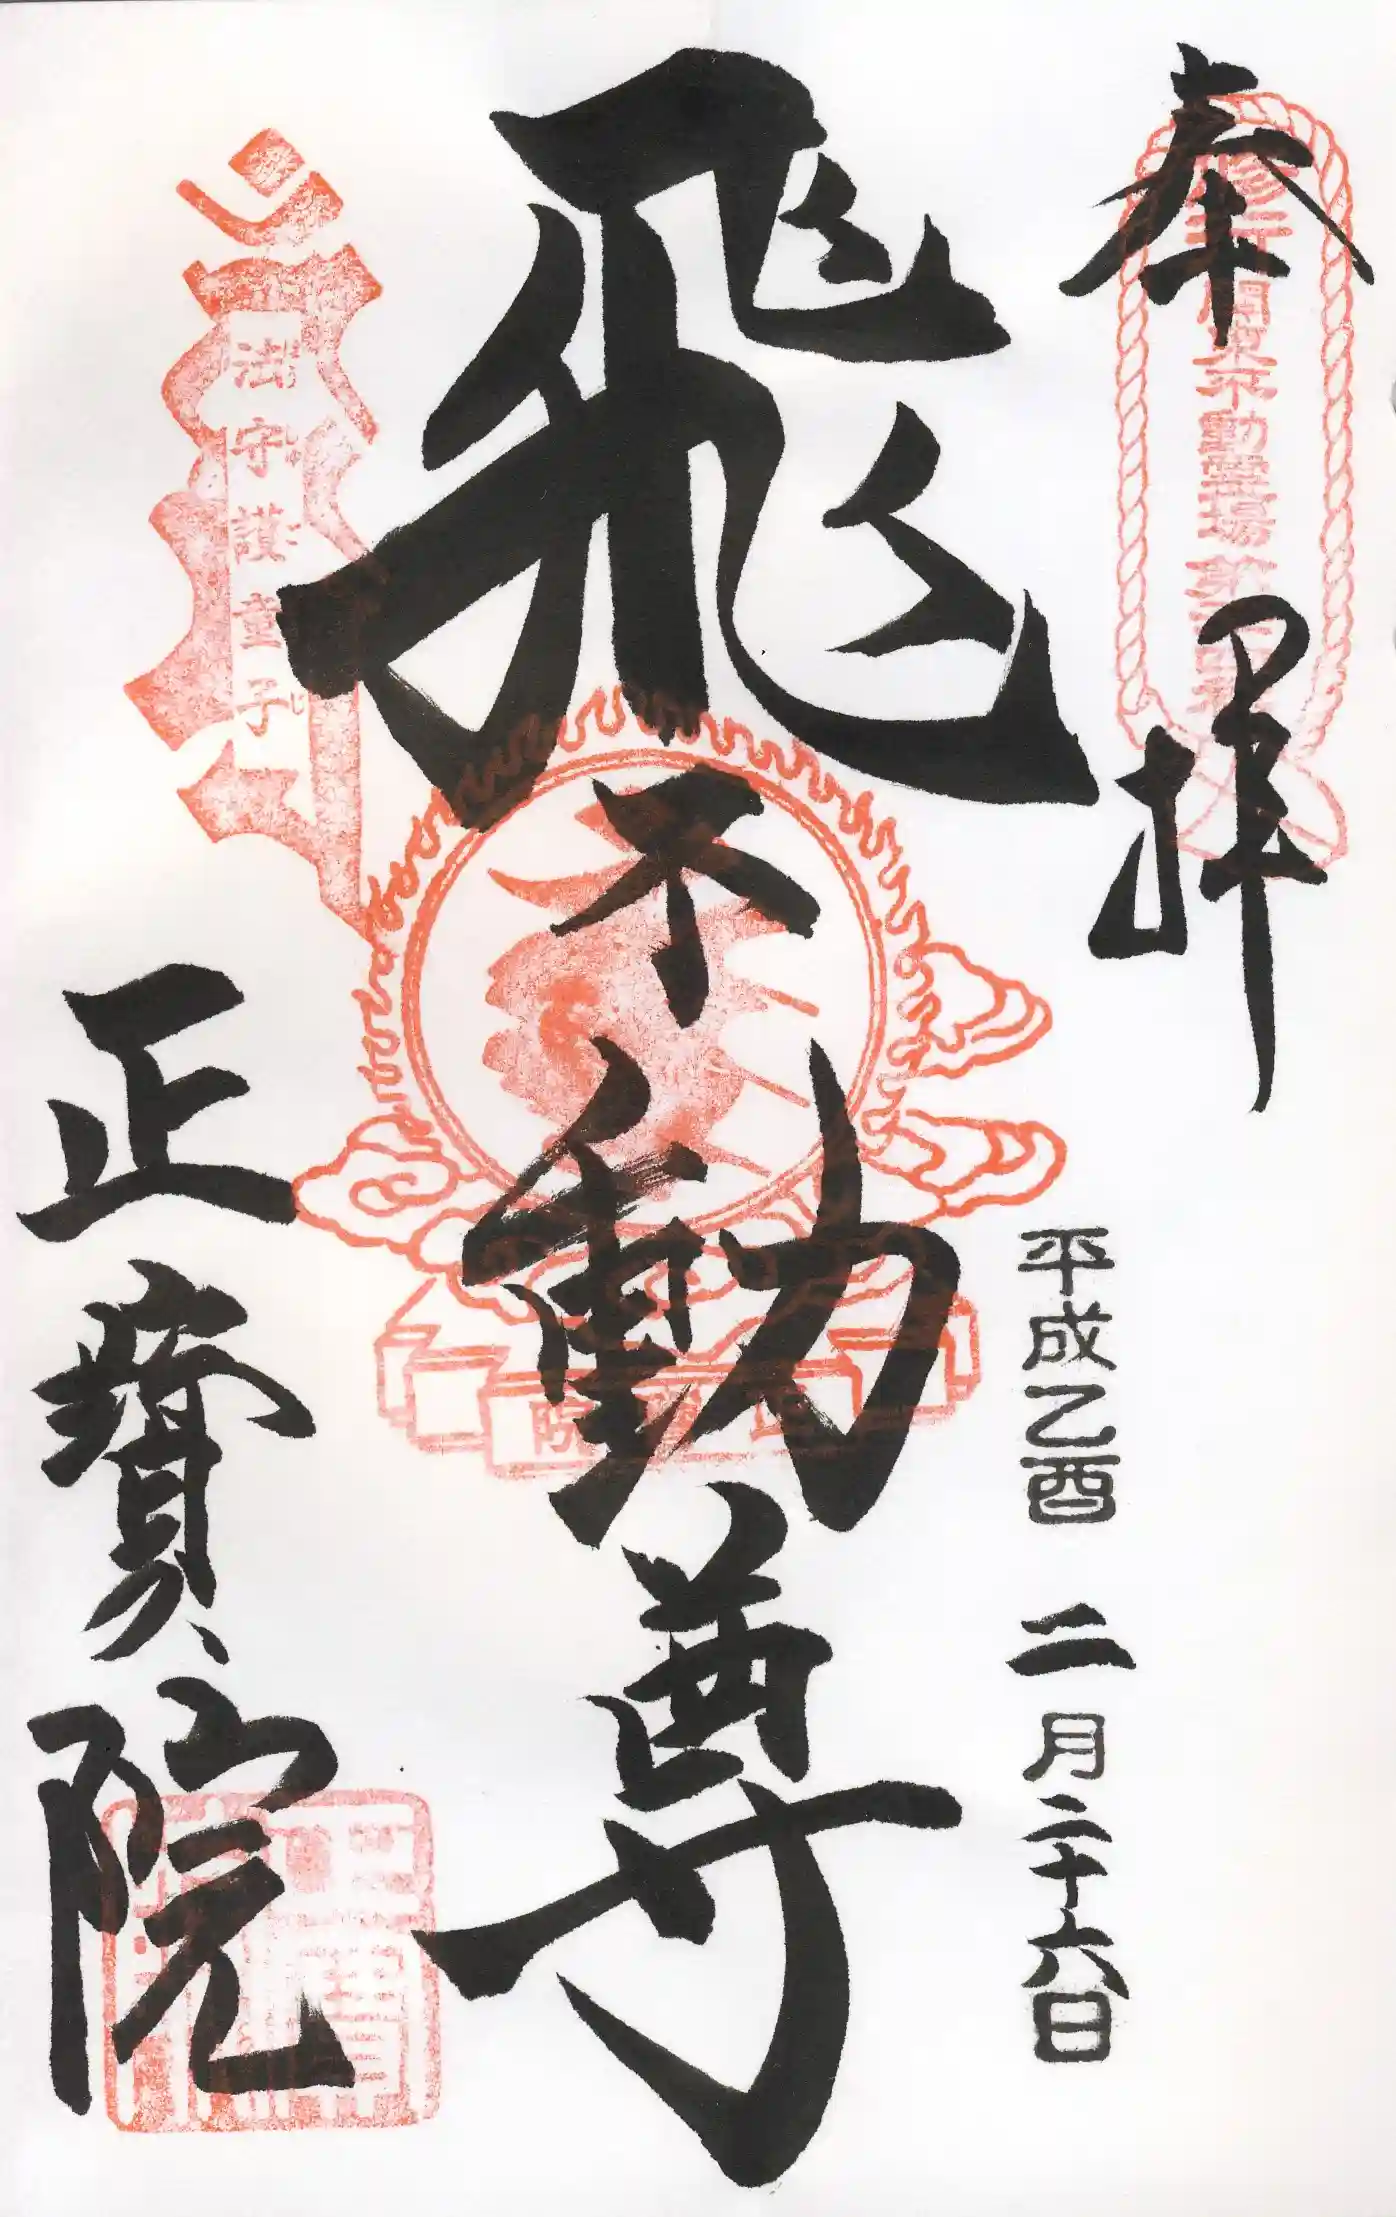 奉拝
関東不動霊場
平成乙酉 二月二十六日
飛不動尊
法守護童子
正寶院